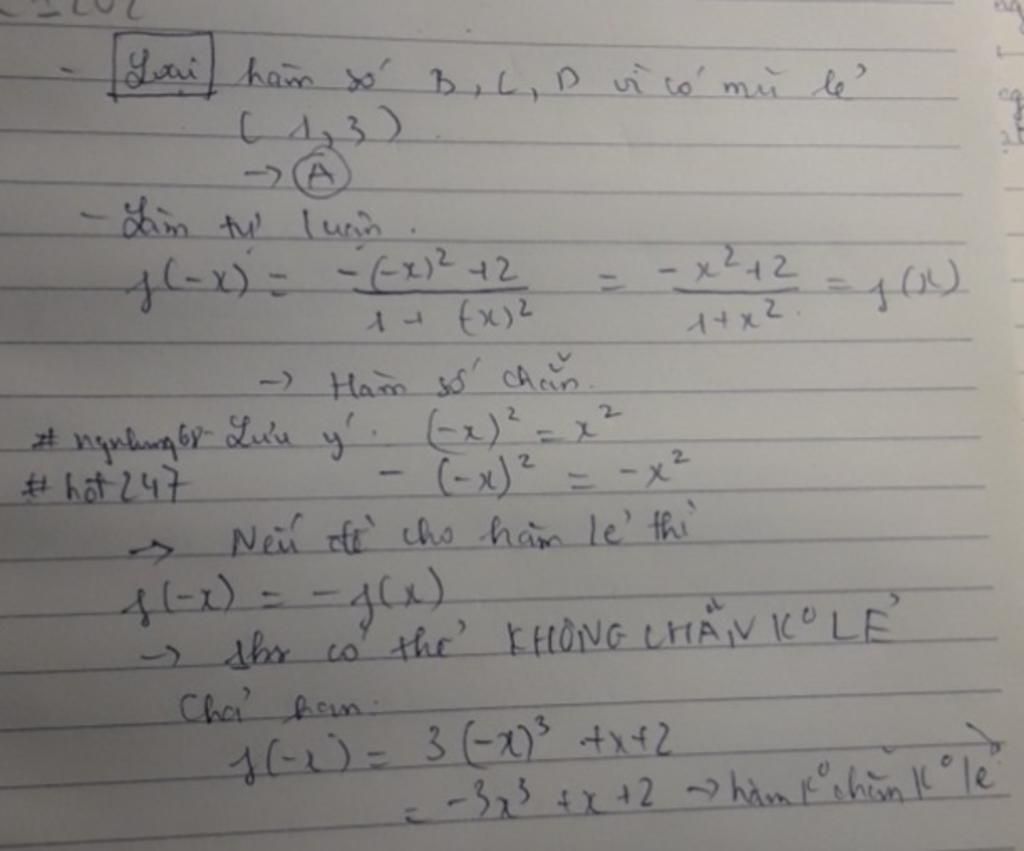 - Loại hàm số B, C, D vì có mũ lẻ
( 1, 3 )
→ A
- Làm tự luận.
f(-x) = \frac{-(-x)^2+2}{1+(-x)^2} = \frac{-x^2+2}{1+x^2} = f(x)
→ Hàm số chẵn.
Lưu ý: (-x)^2 = x^2
# hot247 - (-x)^2 = -x^2
→ Nếu đề cho hàm lẻ thì
f(-x) = -f(x)
→ có thể KHÔNG CHẴN K° LẺ
Chả hạn:
f(-x) = 3(-x)^3 +x+2
= -3x^3 +x+2 → hàm K° chẵn K° lẻ